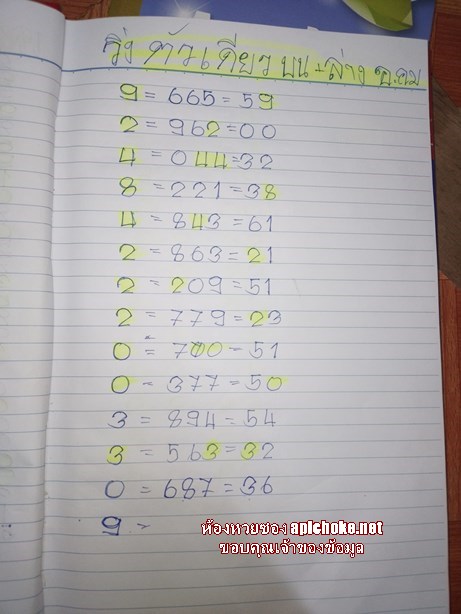 วิ่ง ตัวเดียว บน+ล่าง อ.ดม
9 = 665 = 59
2 = 962 = 00
4 = 044 = 32
8 = 221 = 38
4 = 843 = 61
2 = 863 = 21
2 = 209 = 51
2 = 779 = 23
0 = 700 - 51
0 - 377 = 50
3 = 894 = 54
3 = 563 = 32
0 = 687 = 36
9 -
ห้องหวยซอง apichoke.net
ขอบคุณเจ้าของข้อมูล